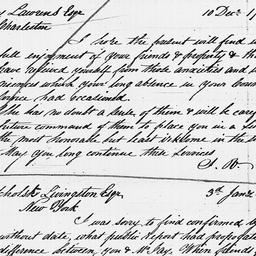 Lawrens Esqr 10 Decr 1
Charleston
I hope the present will find
full enjoyment of your friends & property & th
have relieved yourself from those anxieties and
which your long absence in your
had occasioned.
She has no doubt a of them & will be care
future command of them to place you in a
the most Honorable but least irksome in the
May you long continue these services
Livingston Esqr, 3d Jany
New York
I was sorry to find confirmed by
without date, what public report had propogate
difference between you & Mr Jay. When friends